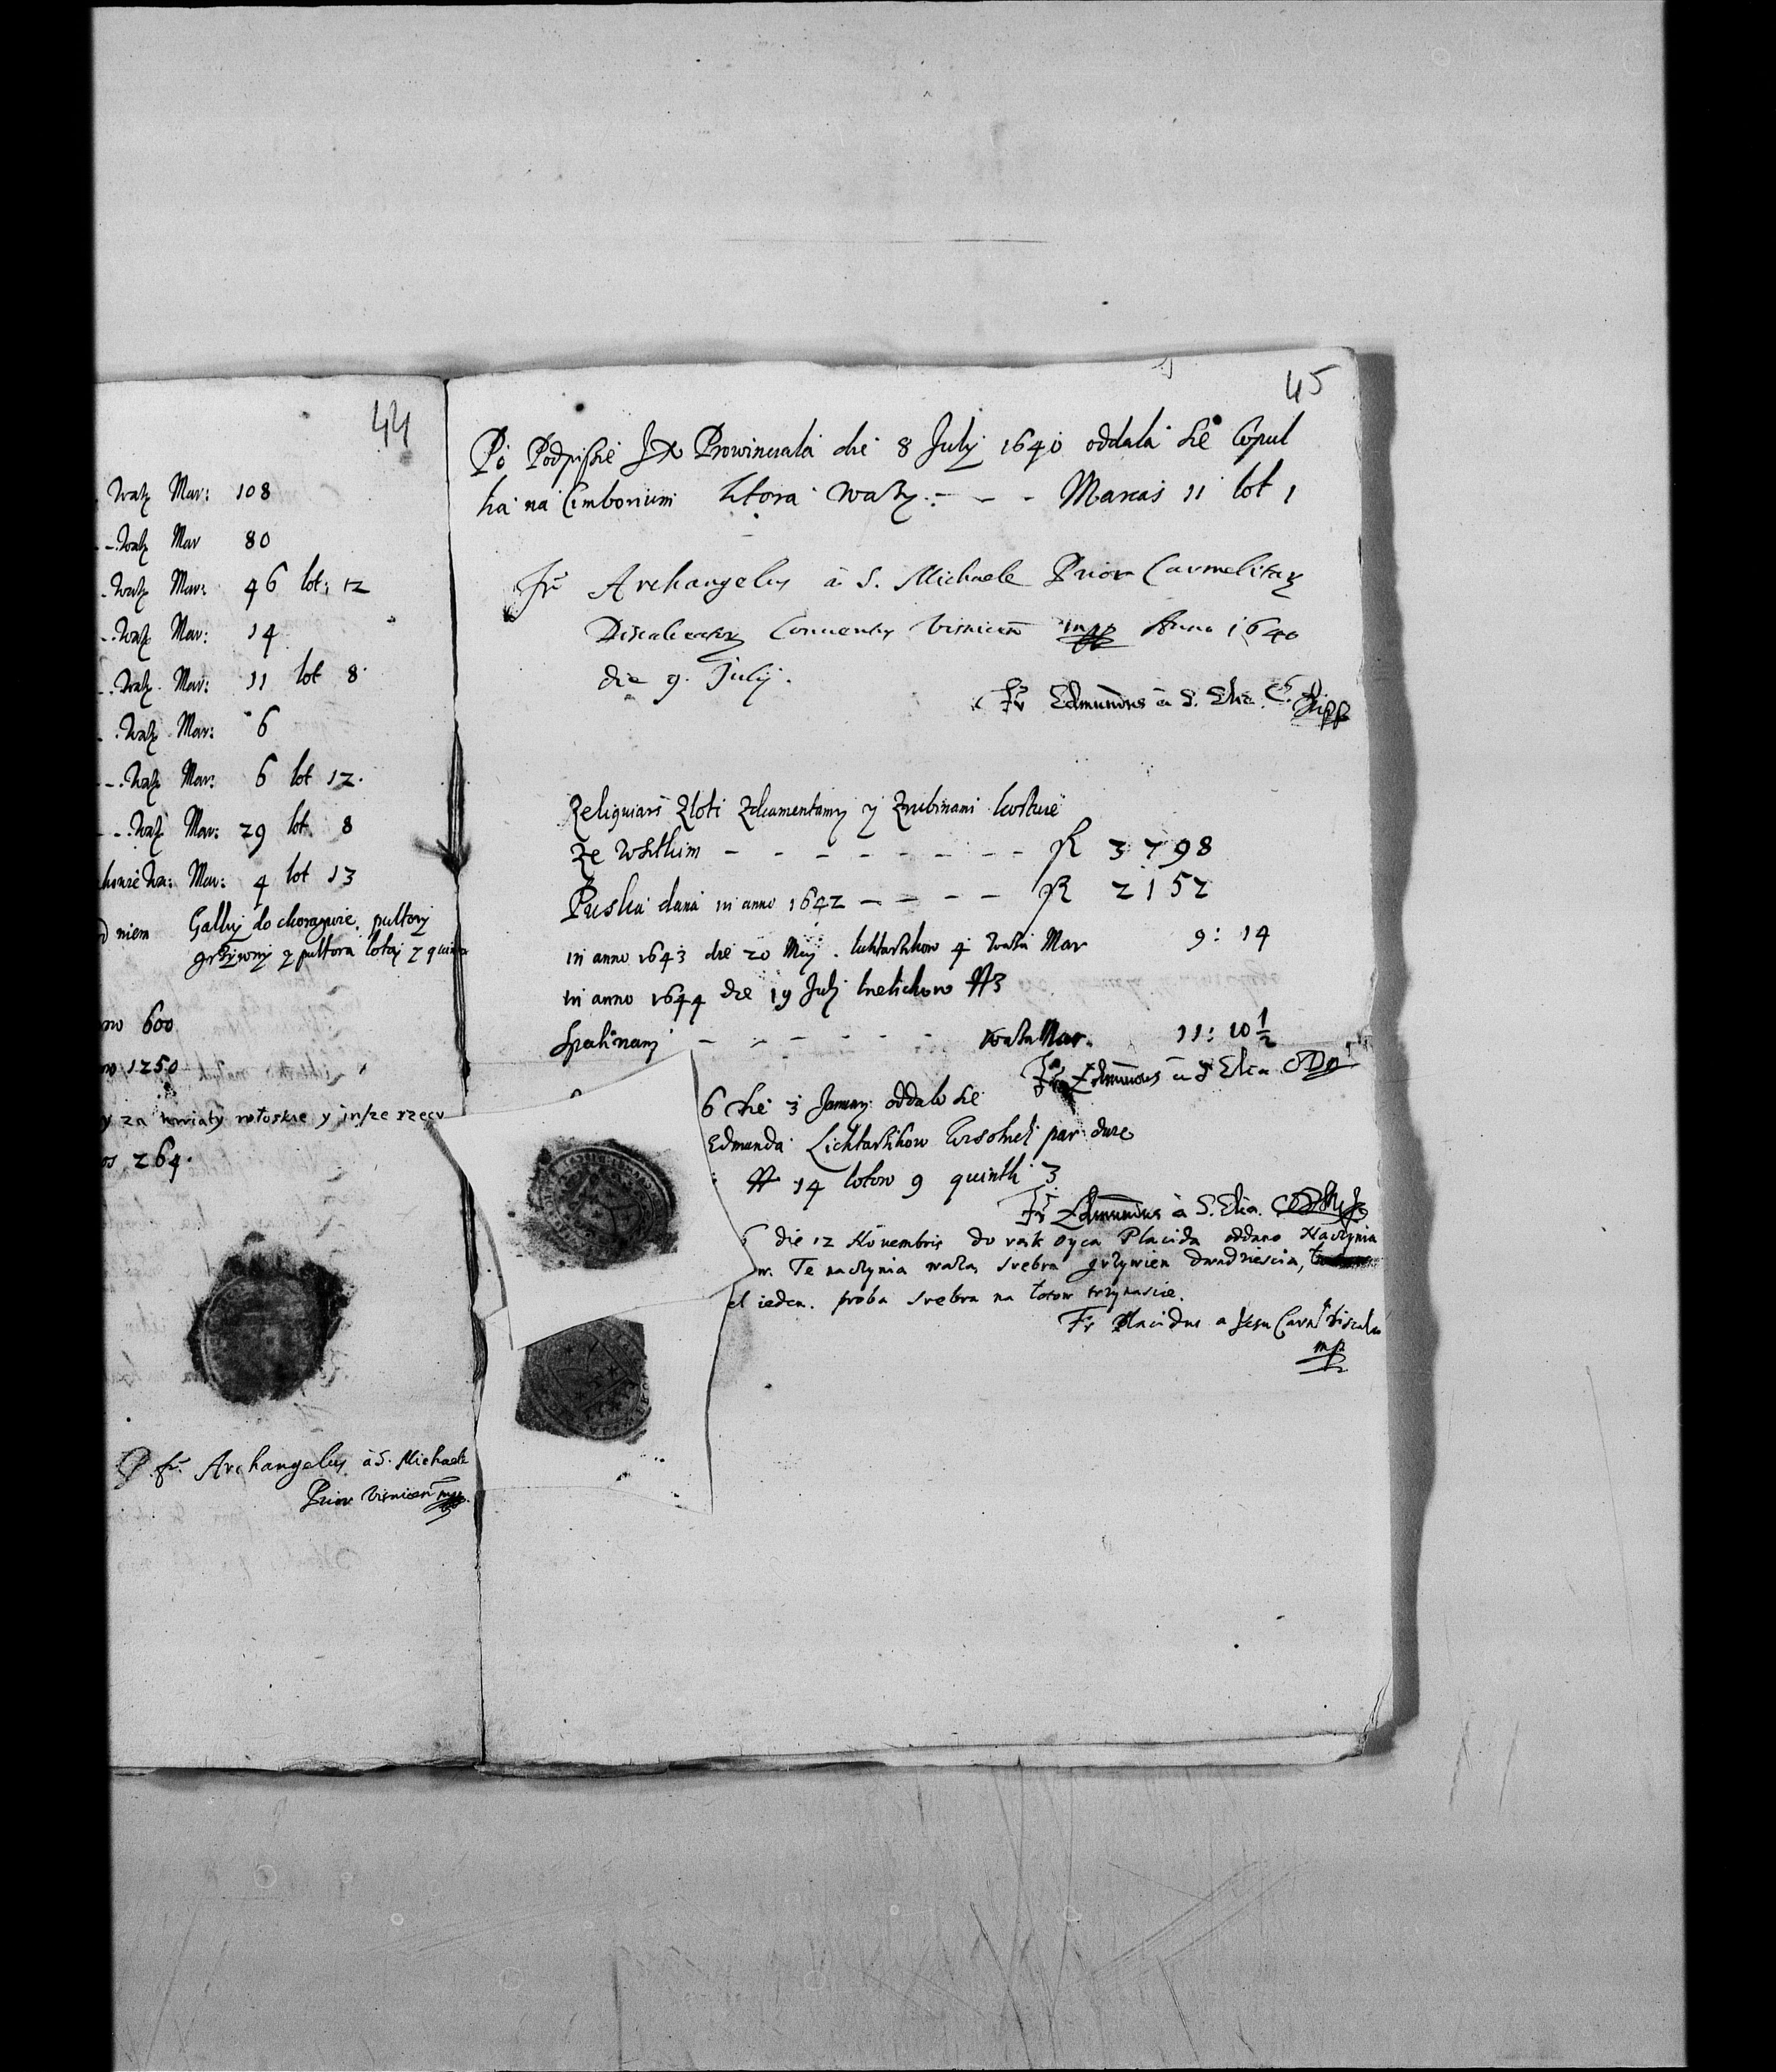 44
Waży Mar: 108
Waży Mar 80
Waży Mar: 46 lot: 12
Waży Mar: 14
Waży Mar: 11 lot 8
Waży Mar: 6
Waży Mar: 6 lot 12.
Waży Mar: 29 lot 8
Mar: 4 lot 13
niem Gałky do chorągwie, pułtory
grzywny y pułtora lota y
600
1250
y za kwiaty włoskie y insze rzeczy
264.
fr. Archangelus à S. Michaele
Prior Visnicen mpp
45
Po Podpisie Prowinciala die 8 July 1640 oddala sie Copul
ka na Cimborium ktora Waży: - - - Marcas 11 lot 1
Fr Archangelus à S. Michaele Prior Carmelitarum
Discalceatorum Conventus Visnicen mpp Anno 1640
die 9. July.
Fr Edmundus à S. Elia
Reliquiarz Złoti Zdiamentamy y Zrubinami kostuie
ze Wsitkim - - - - - - - - fl 3798
Puska dana in anno 1642 - - - - fl 2152
in anno 1643 die 20 May. lichtarzkow 4 waża Mar 9: 14
in anno 1644 die 19 July kielichow No 3
Spatinamy - - - - - - waża Mar. 11: 10 1/2
Fr Edmundus à S Elia
6 die 3 January oddalo sie
Edmanda Lichtarzkow par dwie
14 lotow 9 quintli 3
Fr Edmundus à S. Elia.
die 12 Novembris do rąk oyca Placida oddano Naczynia
w. Te naczynia ważą srebra grzywien dwadziescia,
ieden. proba srebra na łotow trzynascie.
Fr Placidus a Jesu Carm discalc
mp